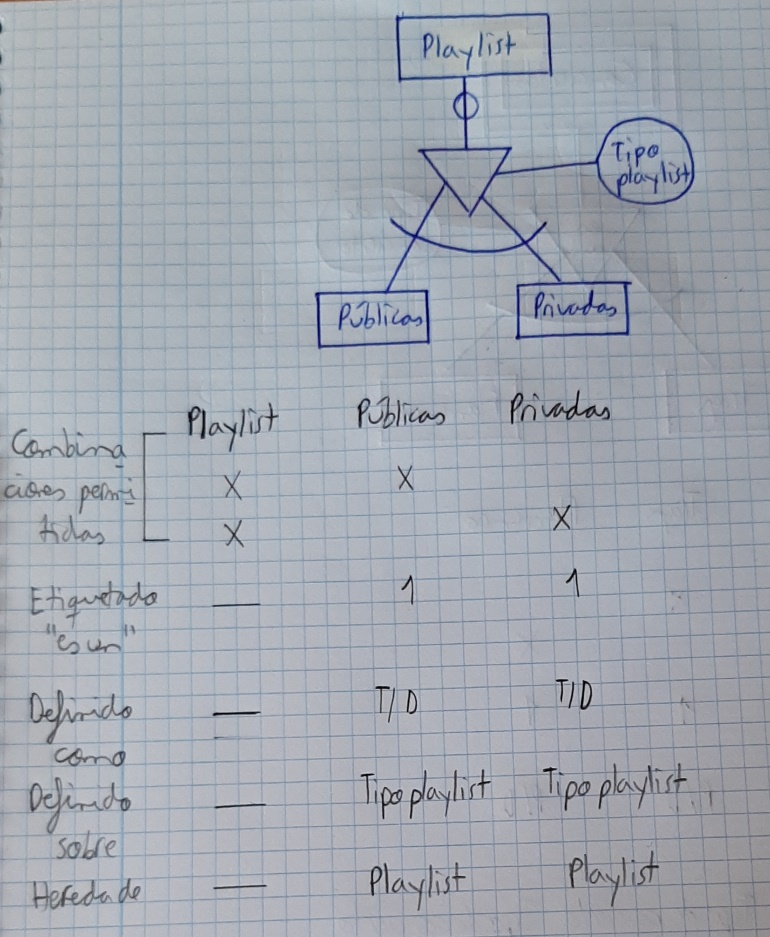 Playlist
Tipo
playlist
Públicas
Privadas
Playlist Públicas Privadas
Combina
ciones permi
tidas
X X
X X
Etiquetado — 1 1
"es un"
Definido — T/D T/D
como
Definido — Tipo playlist Tipo playlist
sobre
Hereda de — Playlist Playlist